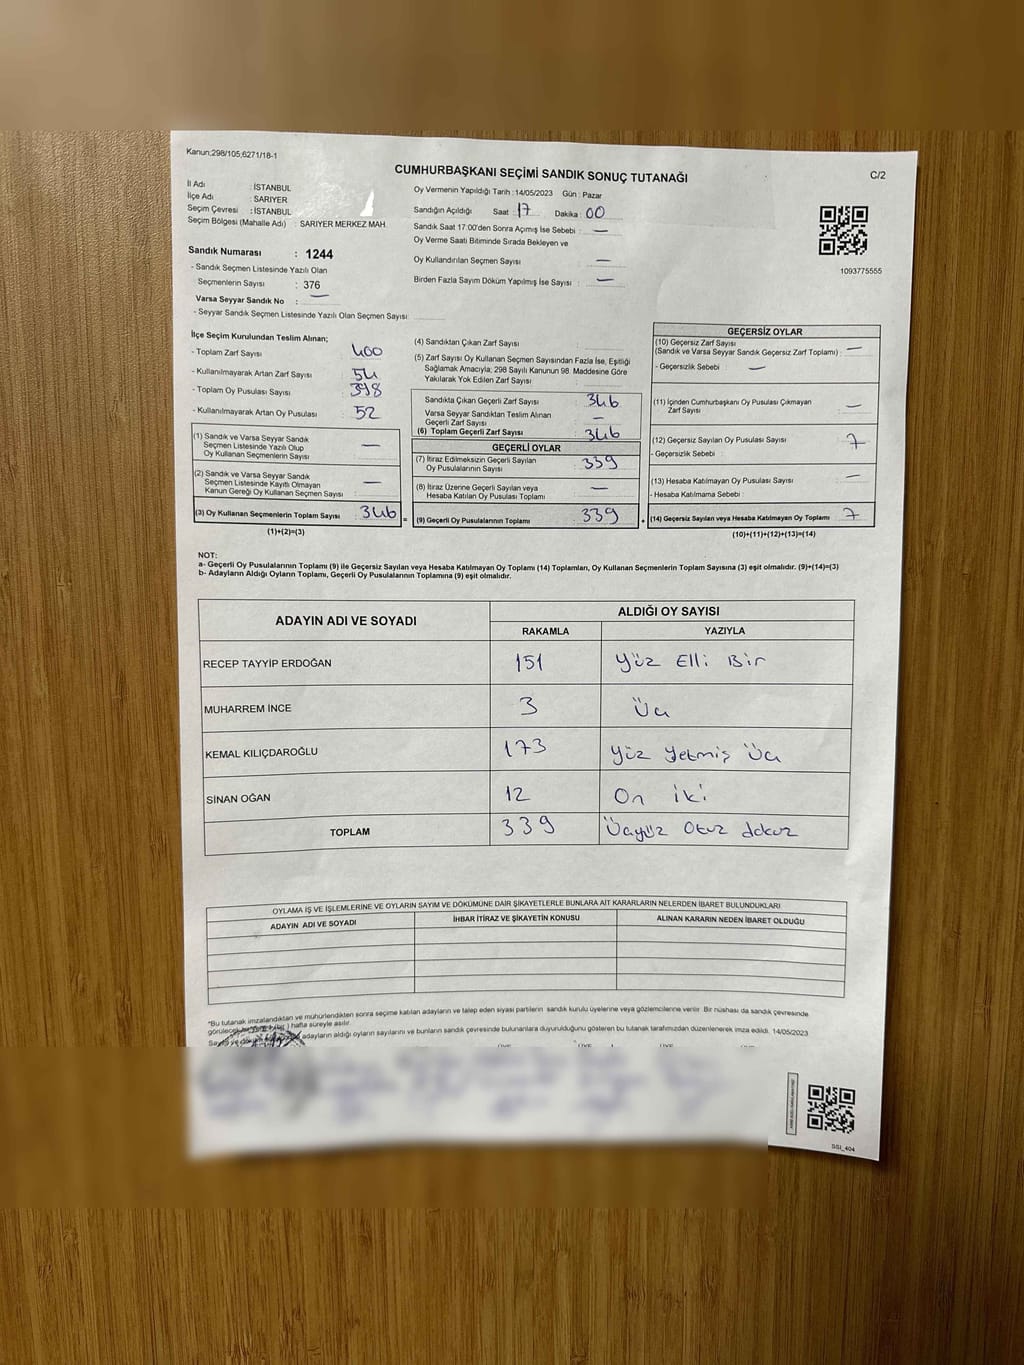 Kanun;298/105,6271/18-1
CUMHURBAŞKANI SEÇİMİ SANDIK SONUÇ TUTANAĞI
C/2
İl Adı : İSTANBUL
İlçe Adı : SARIYER
Seçim Çevresi : İSTANBUL
Seçim Bölgesi (Mahalle Adı) : SARIYER MERKEZ MAH.
Sandık Numarası : 1244
- Sandık Seçmen Listesinde Yazılı Olan
Seçmenlerin Sayısı : 376
Varsa Seyyar Sandık No : —
- Seyyar Sandık Seçmen Listesinde Yazılı Olan Seçmen Sayısı:
Oy Vermenin Yapıldığı Tarih : 14/05/2023 Gün : Pazar
Sandığın Açıldığı Saat : 17 Dakika : 00
Sandık Saat 17:00'den Sonra Açımış İse Sebebi : —
Oy Verme Saati Bitiminde Sırada Bekleyen ve
Oy Kullandırılan Seçmen Sayısı —
Birden Fazla Sayım Döküm Yapılmış İse Sayısı : —
1093775555
İlçe Seçim Kurulundan Teslim Alınan;
- Toplam Zarf Sayısı 400
- Kullanılmayarak Artan Zarf Sayısı 54
- Toplam Oy Pusulası Sayısı 398
- Kullanılmayarak Artan Oy Pusulası 52
(1) Sandık ve Varsa Seyyar Sandık
Seçmen Listesinde Yazılı Olup
Oy Kullanan Seçmenlerin Sayısı —
(2) Sandık ve Varsa Seyyar Sandık
Seçmen Listesinde Kayıtlı Olmayan
Kanun Gereği Oy Kullanan Seçmen Sayısı : —
(3) Oy Kullanan Seçmenlerin Toplam Sayısı : 346
(1)+(2)=(3)
(4) Sandıktan Çıkan Zarf Sayısı :
(5) Zarf Sayısı Oy Kullanan Seçmen Sayısından Fazla İse, Eşitliği
Sağlamak Amacıyla; 298 Sayılı Kanunun 98. Maddesine Göre
Yakılarak Yok Edilen Zarf Sayısı :
Sandıkta Çıkan Geçerli Zarf Sayısı : 346
Varsa Seyyar Sandıktan Teslim Alınan
Geçerli Zarf Sayısı —
(6) Toplam Geçerli Zarf Sayısı : 346
GEÇERLİ OYLAR
(7) İtiraz Edilmeksizin Geçerli Sayılan
Oy Pusulalarının Sayısı : 339
(8) İtiraz Üzerine Geçerli Sayılan veya
Hesaba Katılan Oy Pusulası Toplamı —
=
(9) Geçerli Oy Pusulalarının Toplamı : 339
+
GEÇERSİZ OYLAR
(10) Geçersiz Zarf Sayısı
(Sandık ve Varsa Seyyar Sandık Geçersiz Zarf Toplamı) : —
- Geçersizlik Sebebi : —
(11) İçinden Cumhurbaşkanı Oy Pusulası Çıkmayan
Zarf Sayısı —
(12) Geçersiz Sayılan Oy Pusulası Sayısı : 7
- Geçersizlik Sebebi :
(13) Hesaba Katılmayan Oy Pusulası Sayısı : —
- Hesaba Katılmama Sebebi :
(14) Geçersiz Sayılan veya Hesaba Katılmayan Oy Toplamı : 7
(10)+(11)+(12)+(13)=(14)
NOT:
a- Geçerli Oy Pusulalarının Toplamı (9) ile Geçersiz Sayılan veya Hesaba Katılmayan Oy Toplamı (14) Toplamları, Oy Kullanan Seçmenlerin Toplam Sayısına (3) eşit olmalıdır. (9)+(14)=(3)
b- Adayların Aldığı Oyların Toplamı, Geçerli Oy Pusulalarının Toplamına (9) eşit olmalıdır.
ADAYIN ADI VE SOYADI
ALDIĞI OY SAYISI
RAKAMLA YAZIYLA
RECEP TAYYİP ERDOĞAN 151 Yüz Elli Bir
MUHARREM İNCE 3 Üç
KEMAL KILIÇDAROĞLU 173 Yüz Yetmiş Üç
SİNAN OĞAN 12 On iki
TOPLAM 339 Üçyüz Otuz dokuz
OYLAMA İŞ VE İŞLEMLERİNE VE OYLARIN SAYIM VE DÖKÜMÜNE DAİR ŞİKAYETLERLE BUNLARA AİT KARARLARIN NELERDEN İBARET BULUNDUKLARI
ADAYIN ADI VE SOYADI İHBAR İTİRAZ VE ŞİKAYETİN KONUSU ALINAN KARARIN NEDEN İBARET OLDUĞU
*Bu tutanak imzalandıktan ve mühürlendikten sonra seçime katılan adayların ve talep eden siyasi partilerin sandık kurulu üyelerine veya gözlemcilerine verilir. Bir nüshası da sandık çevresinde
hafta süreyle asılır.
adayların aldığı oyların sayılarını ve bunların sandık çevresinde bulunanlara duyurulduğunu gösteren bu tutanak tarafımızdan düzenlenerek imza edildi. 14/05/2023
SSI_404